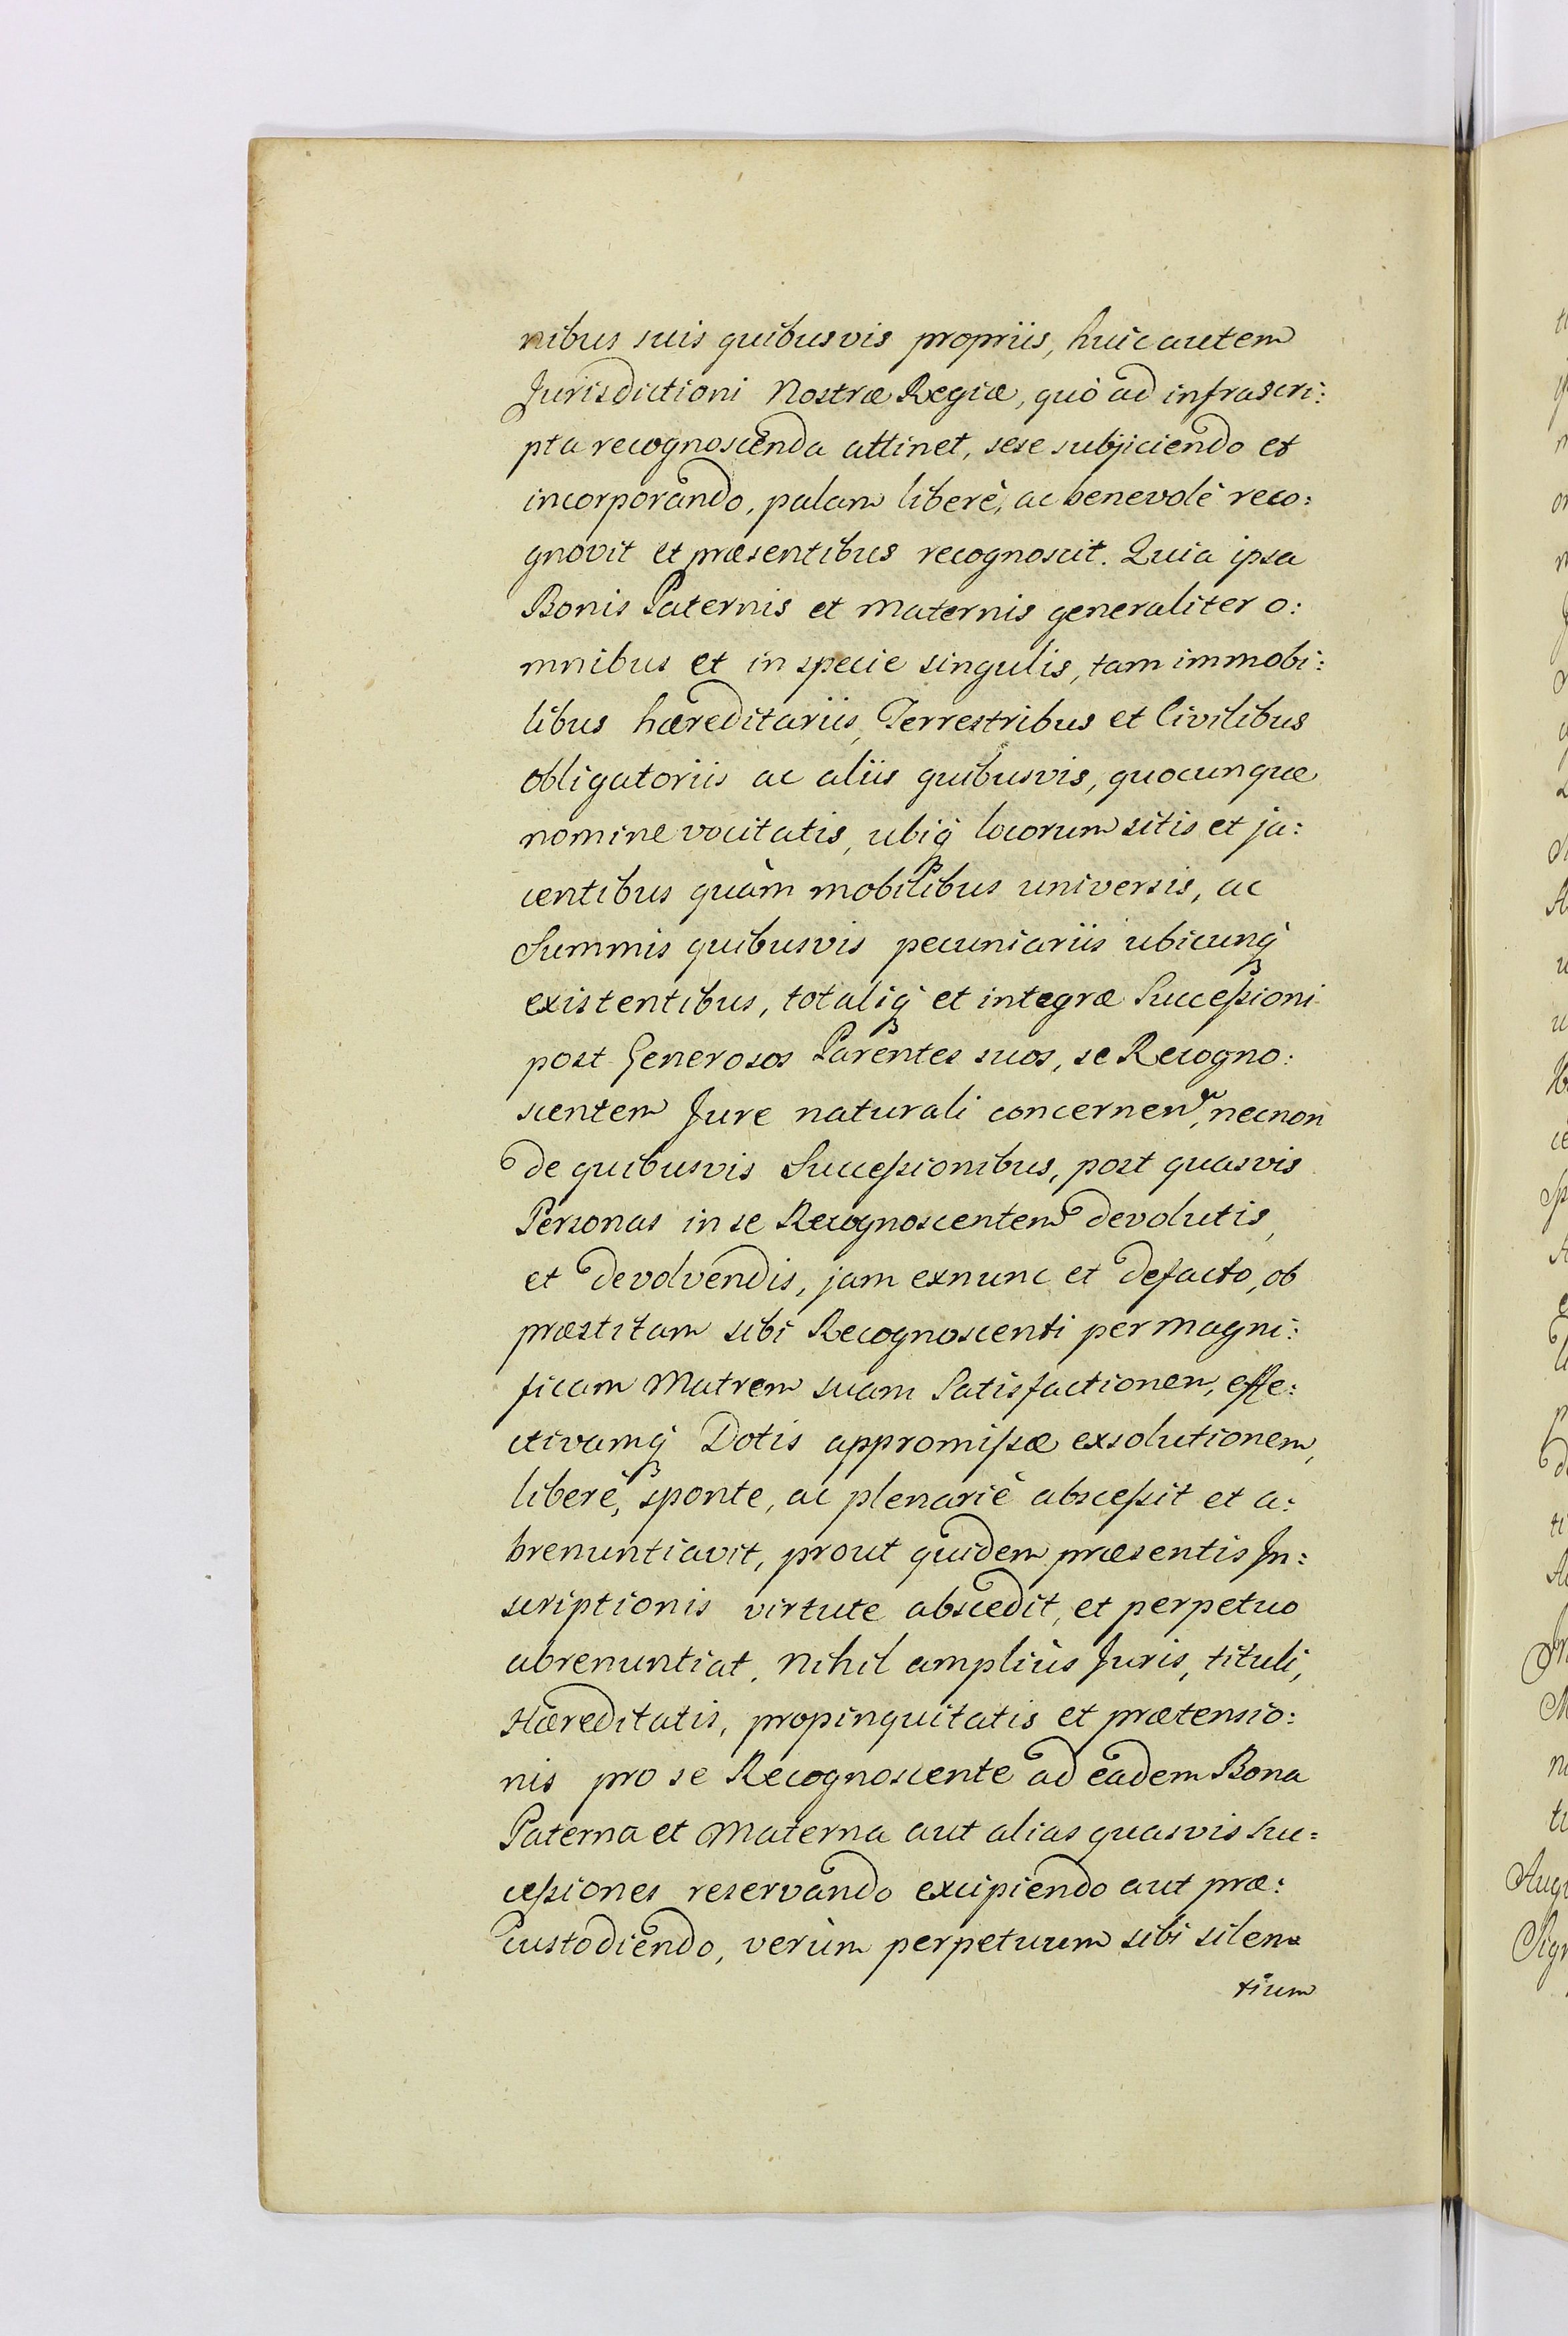 nibus suis quibusvis propriis, huic autem
Jurisdictioni Nostræ Regiæ, quò ad infrascri:
pta recognoscenda attinet, sese subjiciendo et
incorporando, palam liberè, ac benevolè reco:
gnovit et præsentibus recognoscit. Quia ipsa
Bonis Paternis et Maternis generaliter o:
mnibus et in specie singulis, tam immobi:
libus hæreditariis, Terrestribus et Civilibus
obligatoriis ac aliis quibusvis, quocunque
nomine vocitatis, ubiq₃ locorum sitis et ja:
centibus quàm mobilibus universis, ac
Summis quibusvis pecuniariis ubicunq₃
existentibus, totaliq₃ et integræ Succeſsioni
post Generosos Parentes suos, se Recogno:
scentem Jure naturali concernen, necnon
de quibusvis Succeſsionibus, post quasvis
Personas in se Recognoscentem devolutis,
et devolvendis, jam exnunc et defacto, ob
præstitam sibi Recognoscenti per Magni:
ficam Matrem suam Satisfactionem, effe:
ctivamq₃ Dotis appromiſsæ exsolutionem,
liberè, sponte, ac plenariè absceſsit et a:
brenuntiavit, prout quidem præsentis In:
scriptionis virtute abscedit, et perpetuo
abrenuntiat. Nihil ampliùs Juris, tituli,
Hæreditatis, propinquitatis et prætensio:
nis pro se Recognoscente ad eadem Bona
Paterna et Materna aut alias quasvis Suc=
ceſsiones reservando excipiendo aut præ:
custodiendo, verùm perpetuum sibi silen=
tium